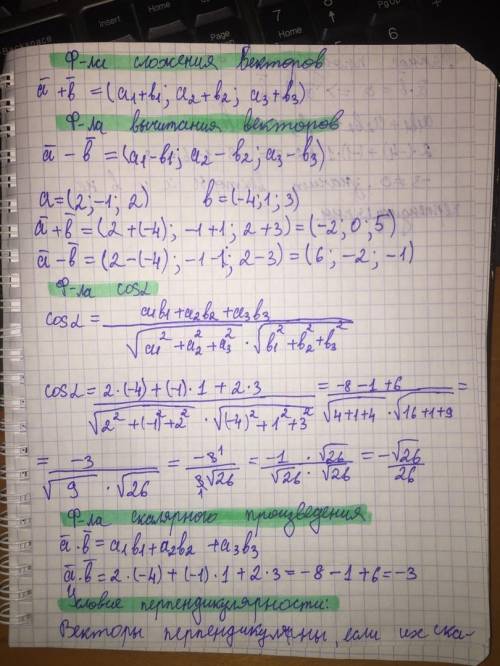 Ф-ла сложения векторов
a̅ + b̅ = (a1+b1; a2+b2; a3+b3)
Ф-ла вычитания векторов
a̅ - b̅ = (a1-b1; a2-b2; a3-b3)
a=(2;-1; 2) b=(-4;1;3)
a̅+b̅=(2+(-4); -1+1; 2+3)=(-2; 0; 5)
a̅-b̅=(2-(-4); -1-1; 2-3)=(6; -2; -1)
Ф-ла cosα
cosα = (a1b1+a2b2+a3b3) / (√(a1²+a2²+a3²) · √(b1²+b2²+b3²))
cosα = (2·(-4)+(-1)·1+2·3) / (√(2²+(-1)²+2²) · √((-4)²+1²+3²)) = (-8-1+6) / (√(4+1+4) · √(16+1+9)) =
= -3 / (√9 · √26) = -3¹ / (3₁√26) = -1/√26 · √26/√26 = -√26/26
Ф-ла скалярного произведения
a̅·b̅=a1b1+a2b2+a3b3
a̅·b̅=2·(-4)+(-1)·1+2·3=-8-1+6=-3
Условие перпендикулярности:
Векторы перпендикулярны, если их ска-